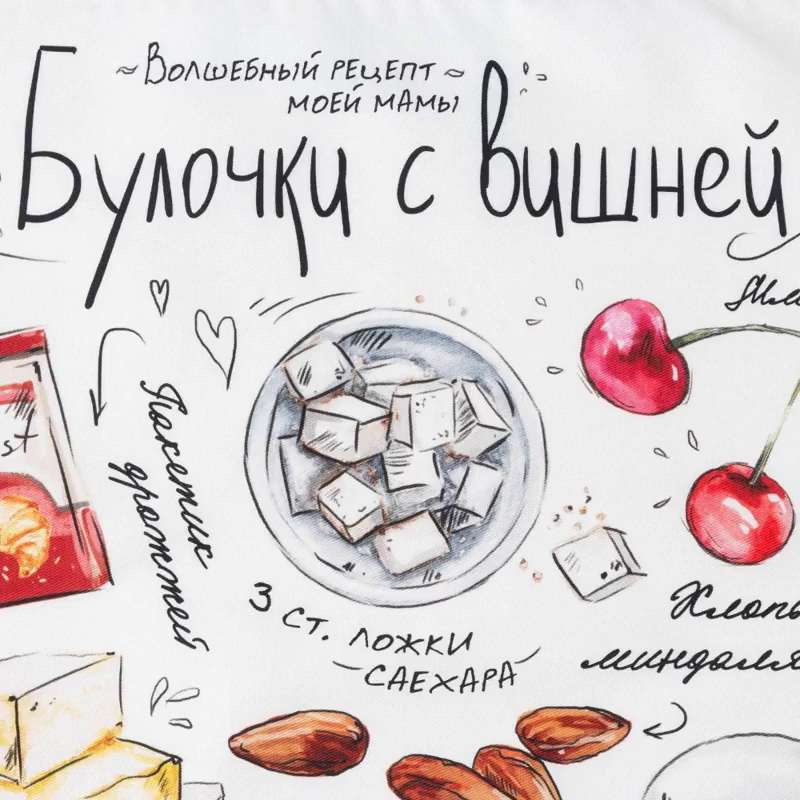 ~ВОЛШЕБНЫЙ РЕЦЕПТ~
МОЕЙ МАМЫ
Булочки с вишней
Пакетик
дрожжей
3 СТ. ЛОЖКИ
САЕХАРА
миндаля